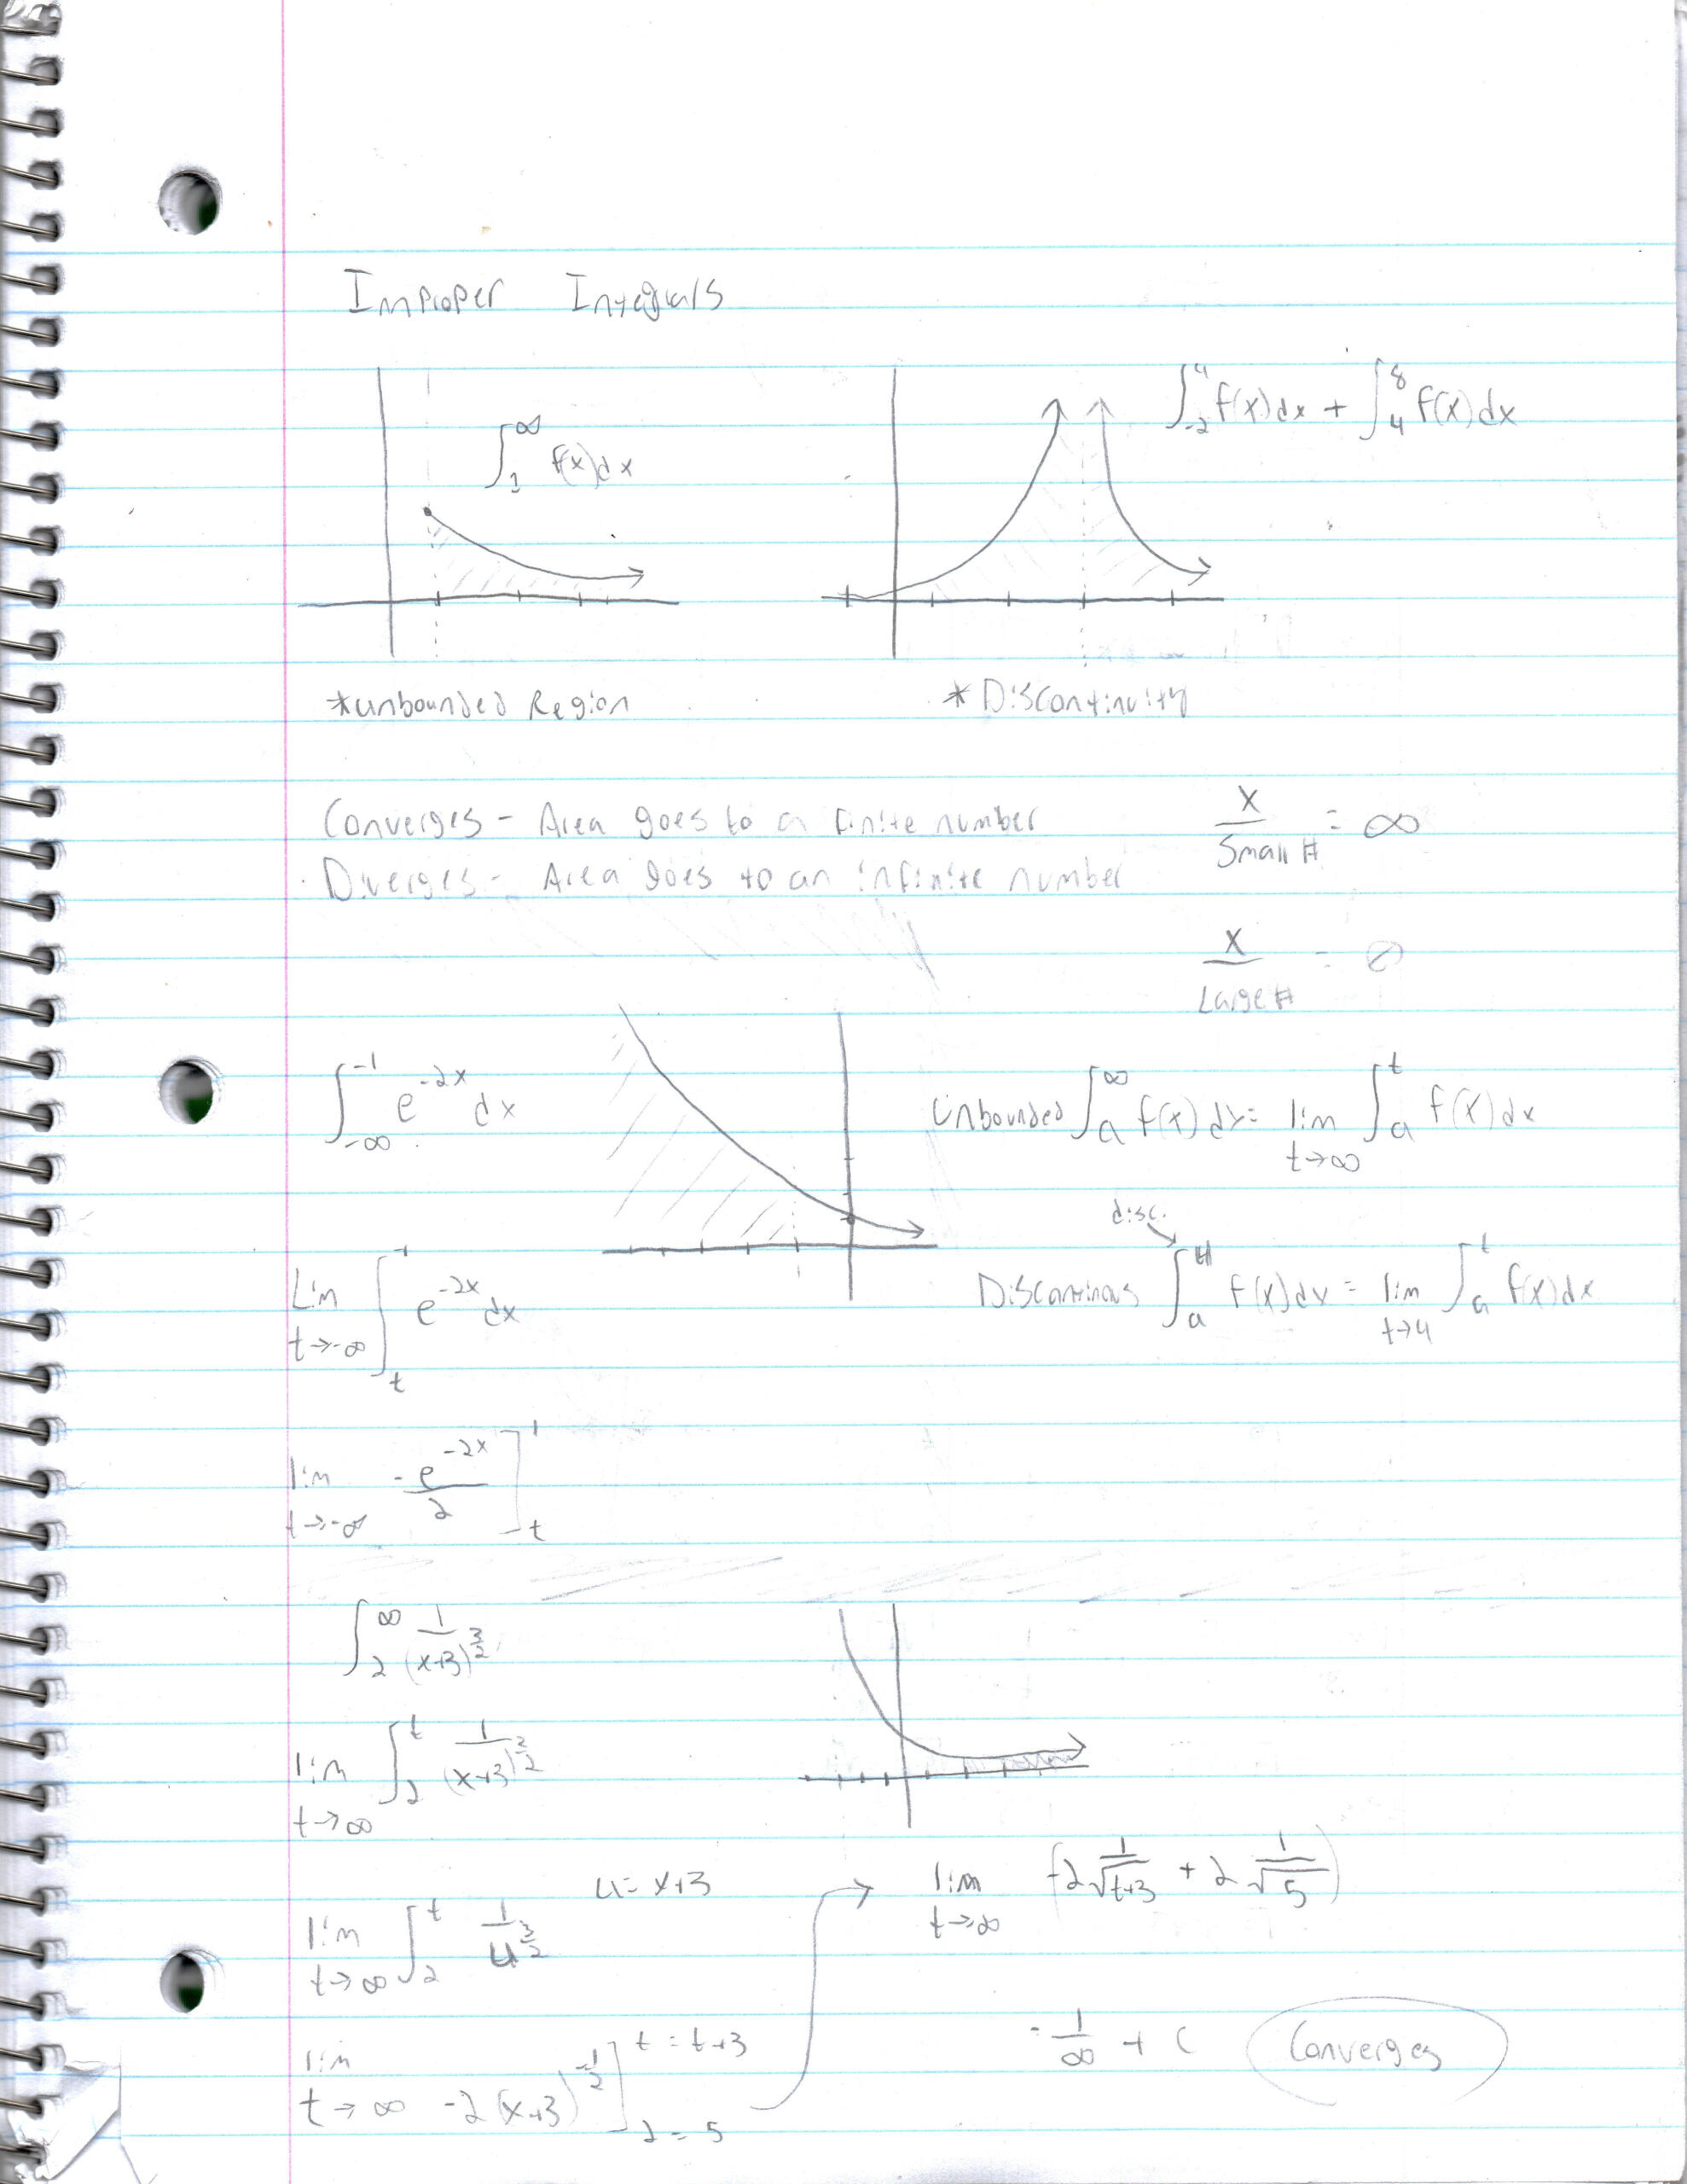 Improper Integrals
∫_1^∞ f(x)dx
∫_{-2}^4 f(x)dx + ∫_4^8 f(x)dx
*unbounded Region
* Discontinuity
Converges - Area goes to a finite number
Diverges - Area goes to an infinite number
x / Small # = ∞
x / Large # = 0
∫_{-∞}^{-1} e^{-2x} dx
Unbounded ∫_a^∞ f(x) dx = lim_{t→∞} ∫_a^t f(x) dx
disc.
Discontinous ∫_a^4 f(x)dx = lim_{t→4} ∫_a^t f(x)dx
Lim_{t→-∞} ∫_t^{-1} e^{-2x} dx
lim_{t→-∞} -e^{-2x} / 2 ]_t^1
∫_2^∞ 1/(x+3)^{3/2}
lim_{t→∞} ∫_2^t 1/(x+3)^{3/2}
u = x+3
lim_{t→∞} ∫_2^t 1/u^{3/2}
lim_{t→∞} -2(x+3)^{-1/2} ]_{2=5}^{t=t+3}
lim_{t→∞} (-2 1/√(t+3) + 2 1/√5)
= 1/∞ + C
Converges